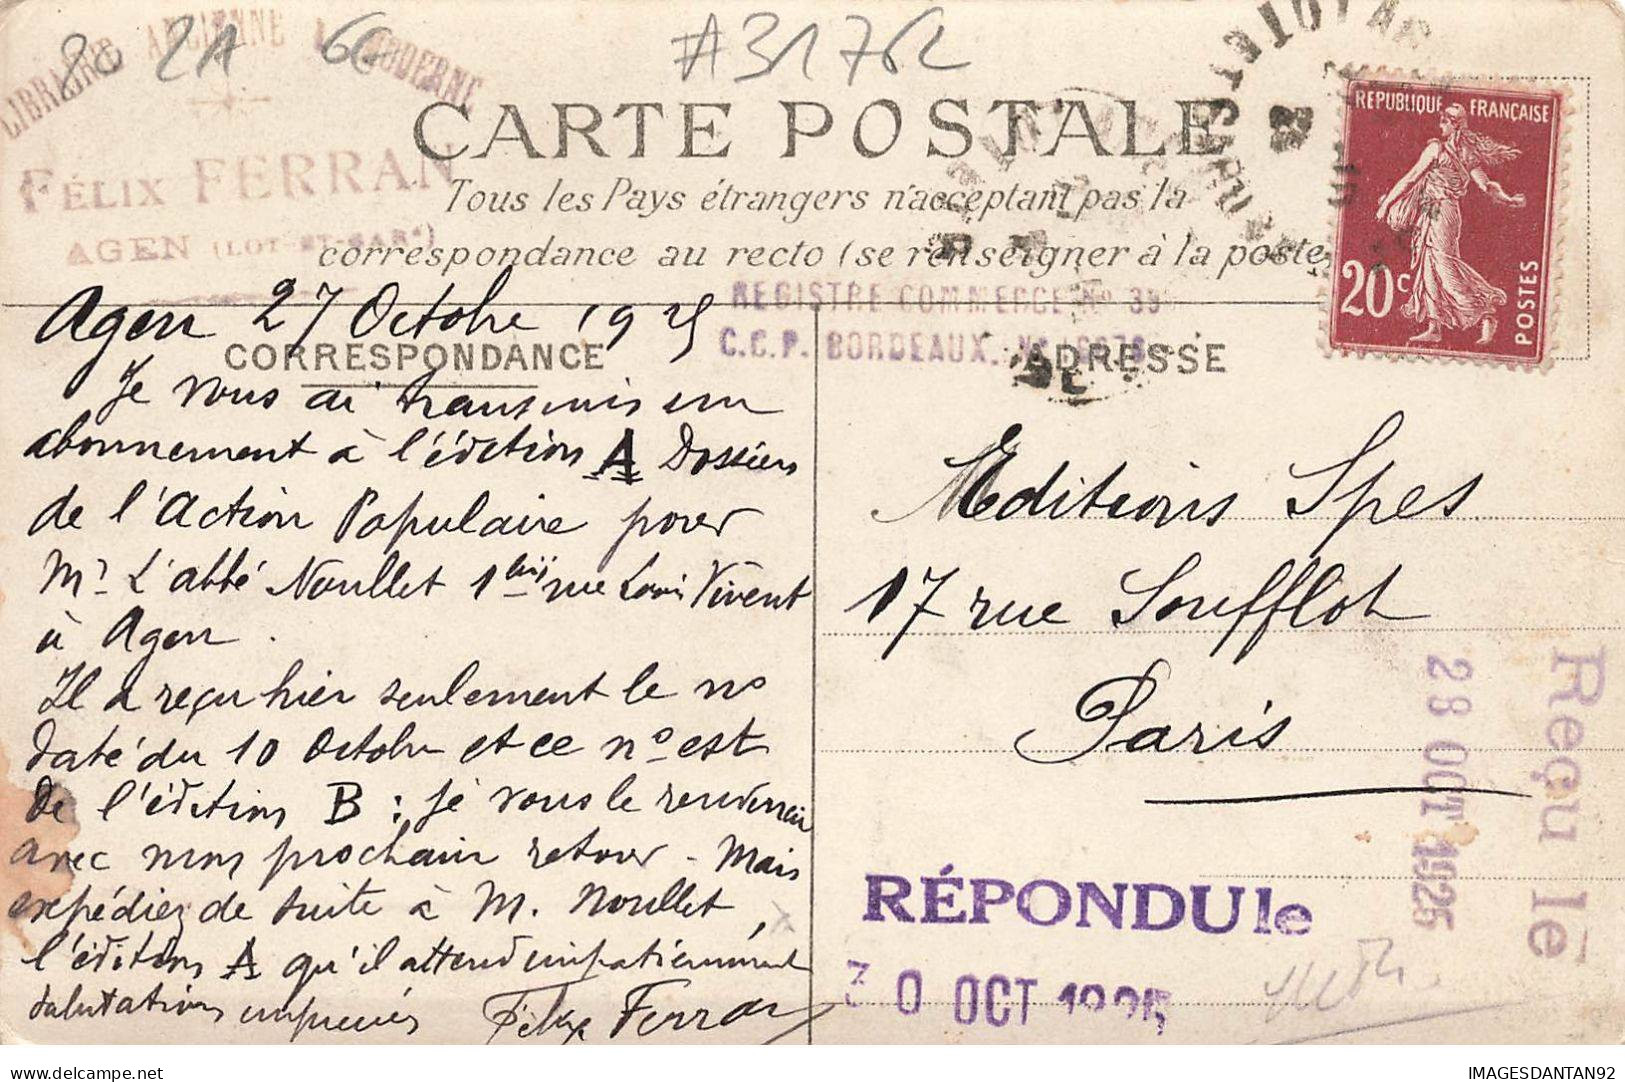 LIBRAIRIE ANCIENNE & MODERNE
FÉLIX FERRAN
AGEN (LOT-ET-GAR^e)
80 2A 66
#3176L
CARTE POSTALE
Tous les Pays étrangers n'acceptant pas la
correspondance au recto (se renseigner à la poste
REPUBLIQUE FRANÇAISE
20c
POSTES
REGISTRE COMMERCE No 39
C.C.P. BORDEAUX. No
CORRESPONDANCE
ADRESSE
Agen 27 Octobre 1925
Je vous ai transmis un
abonnement à l'édition A Dossiers
de l'Action Populaire pour
Mr L'abbé Noullet 1 bis rue Louis Vivent
à Agen.
Il a reçu hier seulement le no
daté du 10 Octobre et ce no est
de l'édition B : je vous le renverrai
avec mon prochain retour - Mais
expédiez de suite à M. Noullet,
l'édition A qu'il attend impatiemment
Salutations empressées Félix Ferran
Editions Spes
17 rue Soufflot
Paris
Reçu le
28 OCT 1925
RÉPONDU le
30 OCT 1925
IMAGESDANTAN92